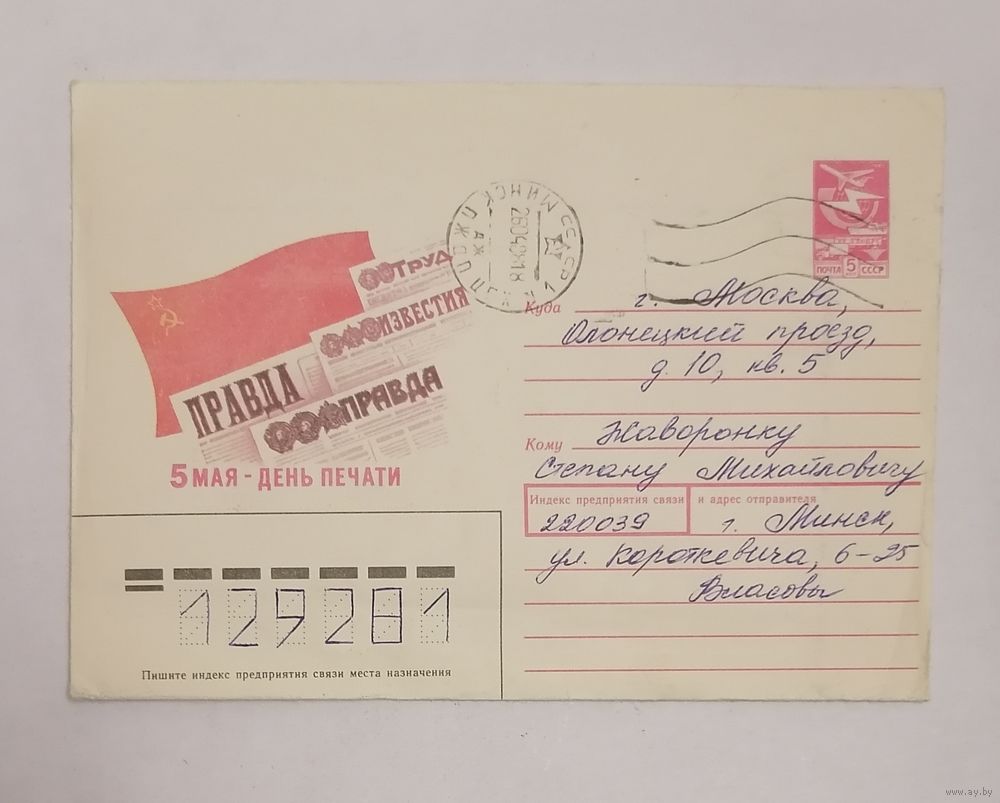 ПОЧТА 5 СССР
МИНСК
Куда г. Москва,
Олонецкий проезд,
д. 10, кв. 5
Кому Жаворонку
Степану Михайловичу
Индекс предприятия связи и адрес отправителя
220039 г. Минск,
ул. Короткевича, 6-25
Власовы
ТРУД
ИЗВЕСТИЯ
ПРАВДА
ПРАВДА
5 МАЯ - ДЕНЬ ПЕЧАТИ
129281
Пишите индекс предприятия связи места назначения
www.ay.by